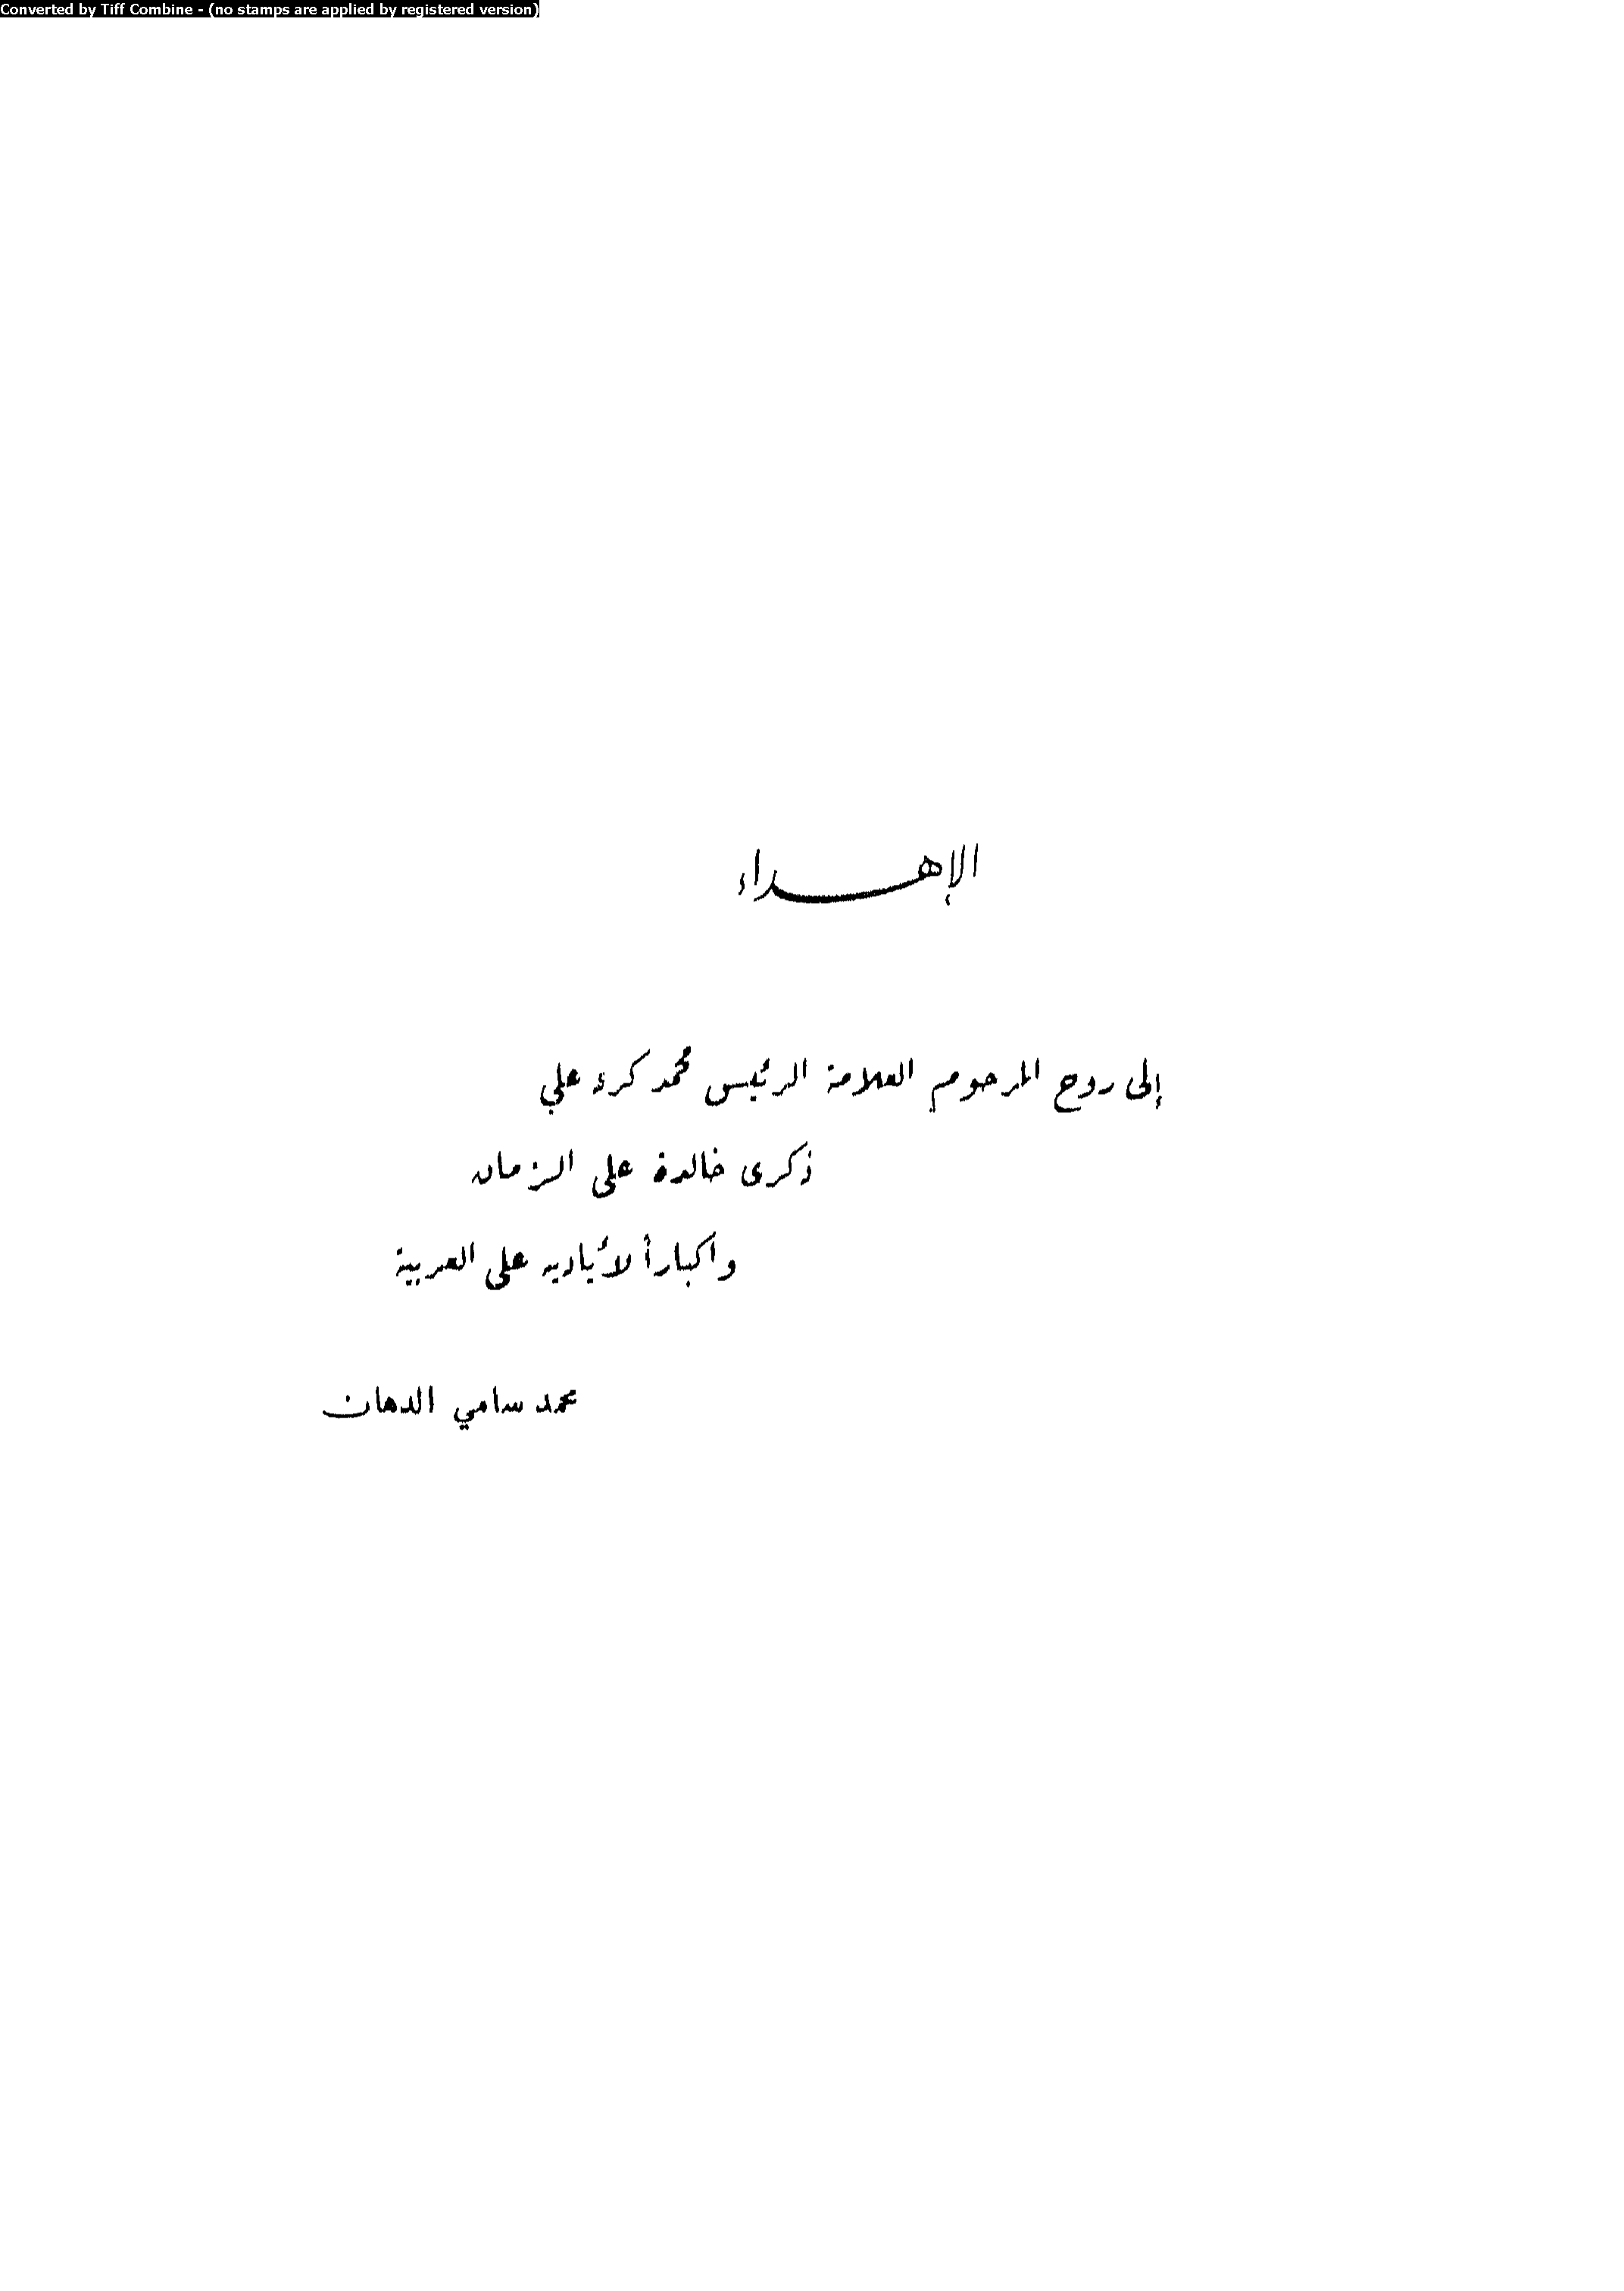 Converted by Tiff Combine - (no stamps are applied by registered version)
الإهداء
إلى روح المرحوم العلامة الرئيس محمد كرد علي
ذكرى خالدة على الزمان
واكباراً لأياديه على العربية
محمد سامي الدهان